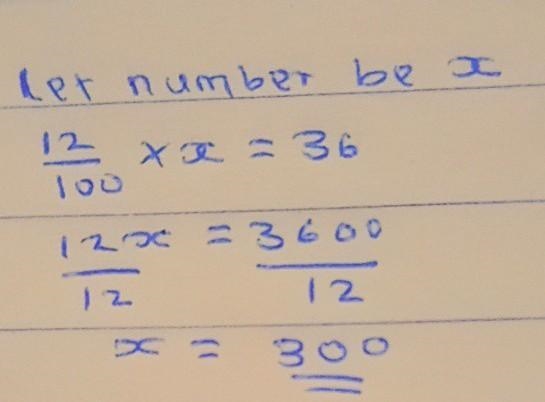 let number be x
12/100 × x = 36
12x/12 = 3600/12
x = 300